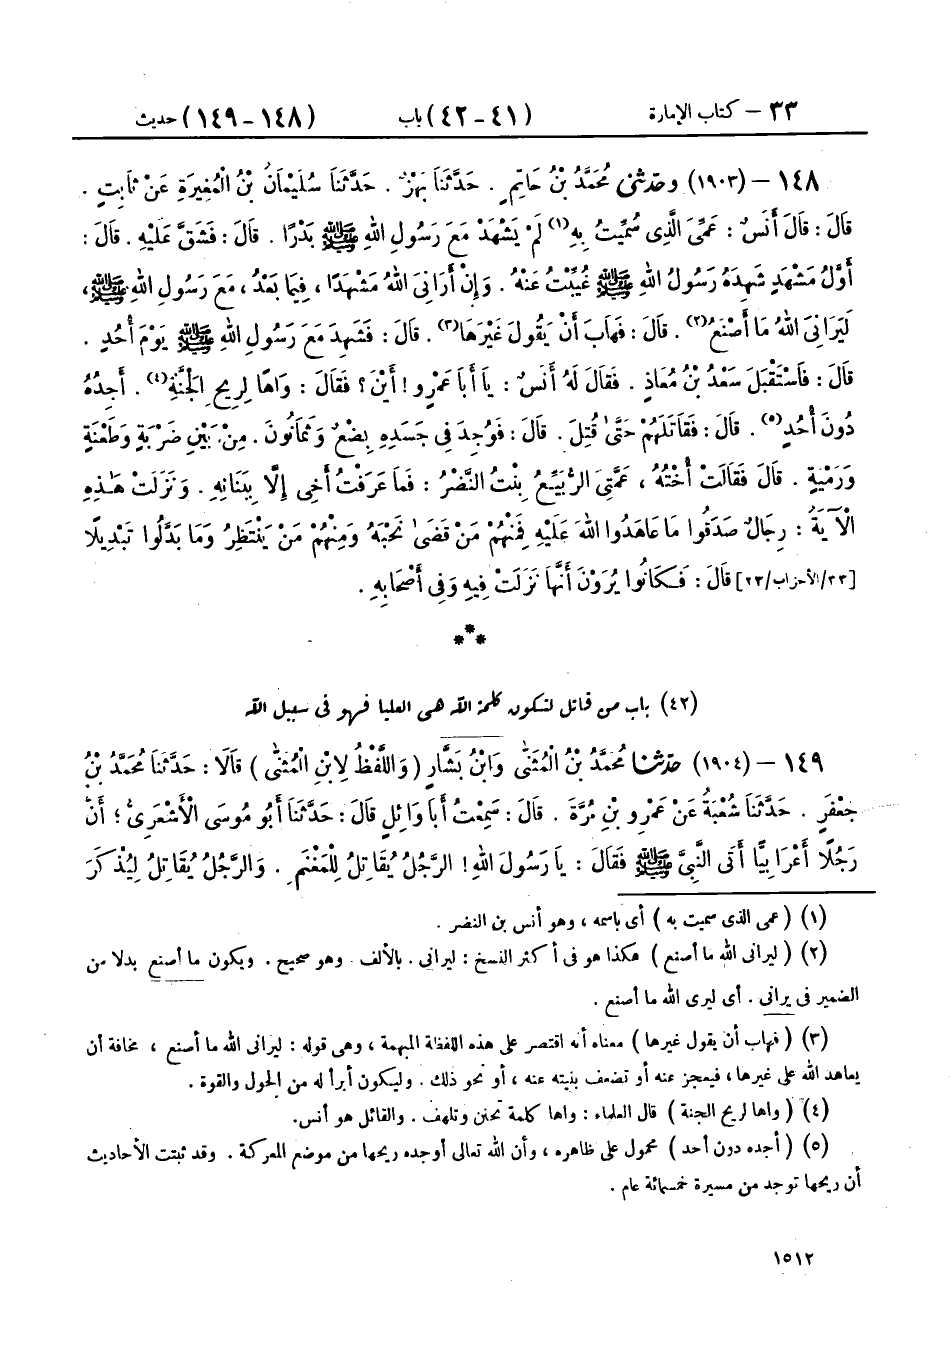 ٣٣ – كتاب الإمارة (٤١-٤٢) باب (١٤٨-١٤٩) حديث
١٤٨ – (١٩٠٣) وحدثنى مُحَمَّدُ بْنُ حَاتِمٍ . حَدَّثَنَا بَهْزٌ . حَدَّثَنَا سُلَيْمَانُ بْنُ الْمُغِيرَةِ عَنْ ثَابِتٍ .
قَالَ : قَالَ أَنَسٌ : عَمِّىَ الَّذِى سُمِّيتُ بِهِ(١) لَمْ يَشْهَدْ مَعَ رَسُولِ اللهِ ﷺ بَدْرًا . قَالَ : فَشَقَّ عَلَيْهِ . قَالَ :
أَوَّلُ مَشْهَدٍ شَهِدَهُ رَسُولُ اللهِ ﷺ غُيِّبْتُ عَنْهُ . وَإِنْ أَرَانِىَ اللهُ مَشْهَدًا ، فِيمَا بَعْدُ ، مَعَ رَسُولِ اللهِ ﷺ ،
لَيَرَانِىَ اللهُ مَا أَصْنَعُ(٢) . قَالَ : فَهَابَ أَنْ يَقُولَ غَيْرَهَا(٣) . قَالَ : فَشَهِدَ مَعَ رَسُولِ اللهِ ﷺ يَوْمَ أُحُدٍ .
قَالَ : فَاسْتَقْبَلَ سَعْدُ بْنُ مُعَاذٍ . فَقَالَ لَهُ أَنَسٌ : يَا أَبَا عَمْرٍو ! أَيْنَ ؟ فَقَالَ : وَاهًا لِرِيحِ الْجَنَّةِ(٤) . أَجِدُهُ
دُونَ أُحُدٍ(٥) . قَالَ : فَقَاتَلَهُمْ حَتَّىٰ قُتِلَ . قَالَ : فَوُجِدَ فِى جَسَدِهِ بِضْعٌ وَثَمَانُونَ . مِنْ بَيْنِ ضَرْبَةٍ وَطَعْنَةٍ
وَرَمْيَةٍ . قَالَ فَقَالَتْ أُخْتُهُ ، عَمَّتِىَ الرُّبَيِّعُ بِنْتُ النَّضْرِ : فَمَا عَرَفْتُ أَخِى إِلَّا بِبَنَانِهِ . وَنَزَلَتْ هَٰذِهِ
الْآيَةُ : رِجَالٌ صَدَقُوا مَا عَاهَدُوا اللهَ عَلَيْهِ فَمِنْهُمْ مَنْ قَضَىٰ نَحْبَهُ وَمِنْهُمْ مَنْ يَنْتَظِرُ وَمَا بَدَّلُوا تَبْدِيلًا
[٣٣/الأحزاب/٢٣] قَالَ : فَكَانُوا يُرَوْنَ أَنَّهَا نَزَلَتْ فِيهِ وَفِى أَصْحَابِهِ .
***
(٤٢) باب من قاتل لتكون كلمة الله هى العليا فهو فى سبيل الله
١٤٩ – (١٩٠٤) حدثنا مُحَمَّدُ بْنُ الْمُثَنَّىٰ وَابْنُ بَشَّارٍ ( وَاللَّفْظُ لِابْنِ الْمُثَنَّىٰ ) قَالَا : حَدَّثَنَا مُحَمَّدُ بْنُ
جَعْفَرٍ . حَدَّثَنَا شُعْبَةُ عَنْ عَمْرِو بْنِ مُرَّةَ . قَالَ : سَمِعْتُ أَبَا وَائِلٍ قَالَ : حَدَّثَنَا أَبُو مُوسَى الْأَشْعَرِىُّ ؛ أَنَّ
رَجُلًا أَعْرَابِيًّا أَتَى النَّبِىَّ ﷺ فَقَالَ : يَا رَسُولَ اللهِ ! الرَّجُلُ يُقَاتِلُ لِلْمَغْنَمِ . وَالرَّجُلُ يُقَاتِلُ لِيُذْكَرَ
(١) ( عمى الذى سميت به ) أى باسمه ، وهو أنس بن النضر .
(٢) ( ليرانى الله ما أصنع ) هكذا هو فى أكثر النسخ : ليرانى . بالألف . وهو صحيح . ويكون ما أصنع بدلا من
الضمير فى يرانى . أى ليرى الله ما أصنع .
(٣) ( فهاب أن يقول غيرها ) معناه أنه اقتصر على هذه اللفظة المبهمة ، وهى قوله : ليرانى الله ما أصنع ، مخافة أن
يعاهد الله على غيرها ، فيعجز عنه أو تضعف بنيته عنه ، أو نحو ذلك . وليكون أبرأ له من الحول والقوة .
(٤) ( واها لريح الجنة ) قال العلماء : واها كلمة تحنن وتلهف . والقائل هو أنس.
(٥) ( أجده دون أحد ) محمول على ظاهره ، وأن الله تعالى أوجده ريحها من موضع المعركة . وقد ثبتت الأحاديث
أن ريحها توجد من مسيرة خمسمائة عام .
١٥١٢